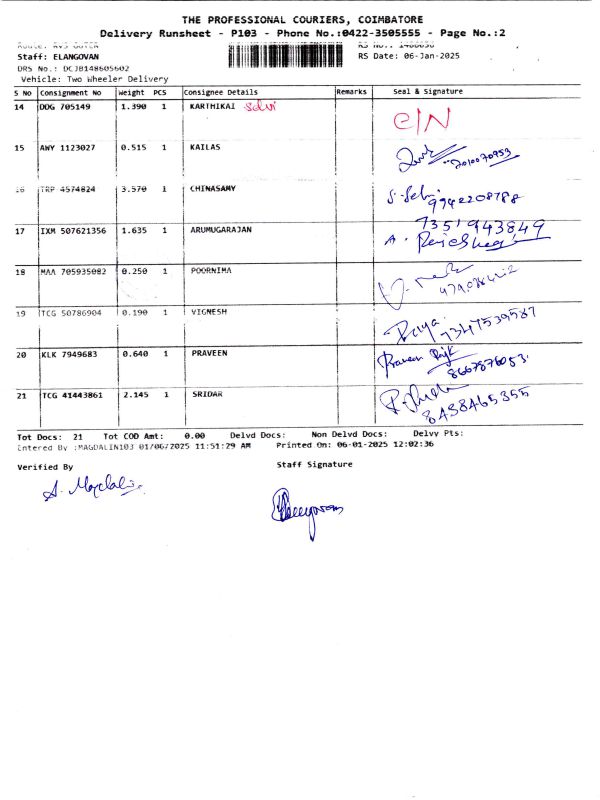 THE PROFESSIONAL COURIERS, COIMBATORE
Delivery Runsheet - P103 - Phone No.:0422-3505555 - Page No.:2
Staff: ELANGOVAN RS Date: 06-Jan-2025
DRS No.: DCJB148605602
Vehicle: Two Wheeler Delivery
S No Consignment No Weight PCS Consignee Details Remarks Seal & Signature
14 DDG 705149 1.390 1 KARTHIKAI Selvi C/N
15 AWY 1123027 0.515 1 KAILAS
7010070953
16 TRP 4574824 3.570 1 CHINASAMY S. Selvi
9942208788
17 IXM 507621356 1.635 1 ARUMUGARAJAN 7351943849
A.
18 MAA 705935082 0.250 1 POORNIMA
19 TCG 50786904 0.190 1 VIGNESH
7347539587
20 KLK 7949683 0.640 1 PRAVEEN Praveen
8667876053
21 TCG 41443861 2.145 1 SRIDAR
8438465355
Tot Docs: 21 Tot COD Amt: 0.00 Delvd Docs: Non Delvd Docs: Delvy Pts:
Entered By :MAGDALIN103 01/06/2025 11:51:29 AM Printed On: 06-01-2025 12:02:36
Verified By Staff Signature
A. Magdalin